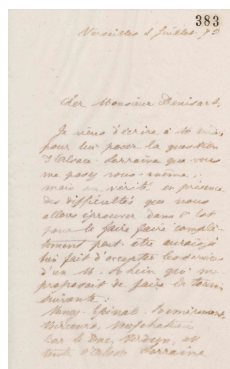 383
Versailles 5 Juillet 72
Cher Monsieur Denisart,
Je viens d'écrire à M
pour lui poser la question
d'Alsace Lorraine que vous
me posez vous-même ;
mais en vérité en présence
des difficultés que nous
allons éprouver dans l'Est
pour le faire faire complè-
tement peut être aurais-je
bien fait d'accepter les services
d'un M. qui me
proposait de faire la tournée
suivante :
Nancy, Epinal, Remiremont,
Mirecourt, Neufchateau
Bar le Duc, Verdun, et
toute l'Alsace Lorraine